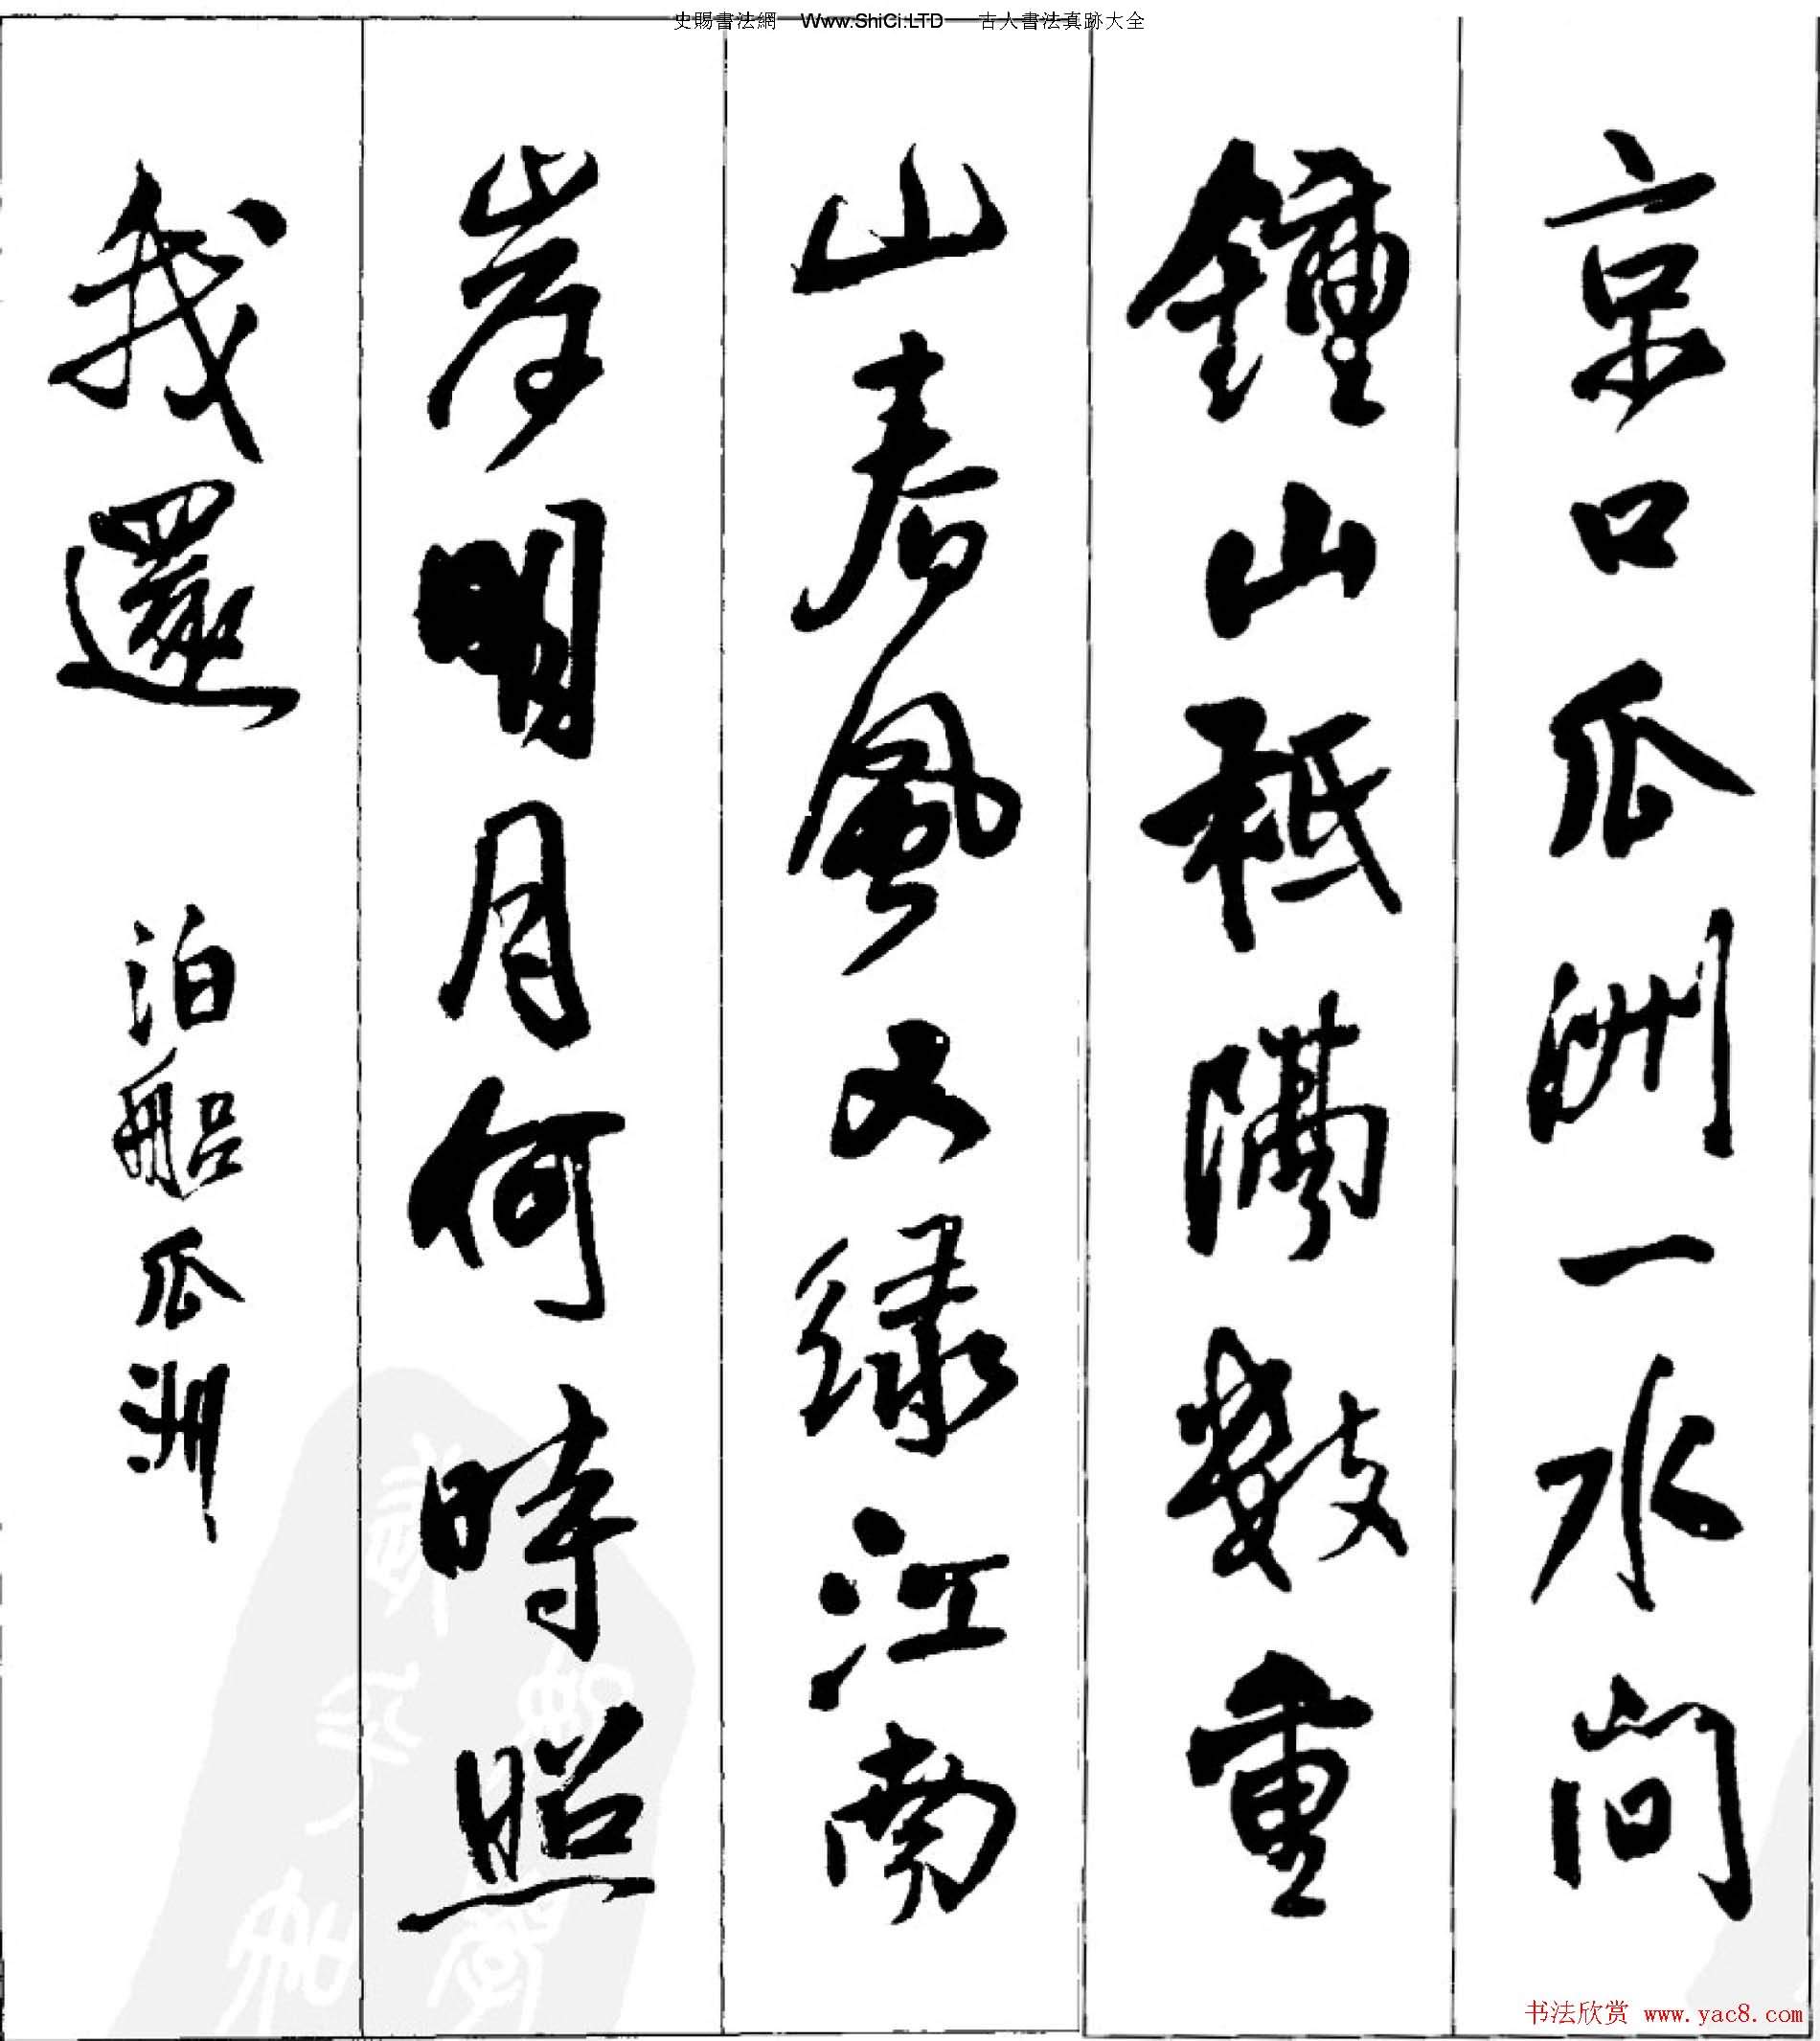 史賜書法網 Www.ShiCi.LTD 古人書法真跡大全
京口瓜洲一水間
鍾山秪隔數重
山春風又緑江南
岸明月何時照
我還 泊船瓜洲
书法欣赏 www.yac8.com